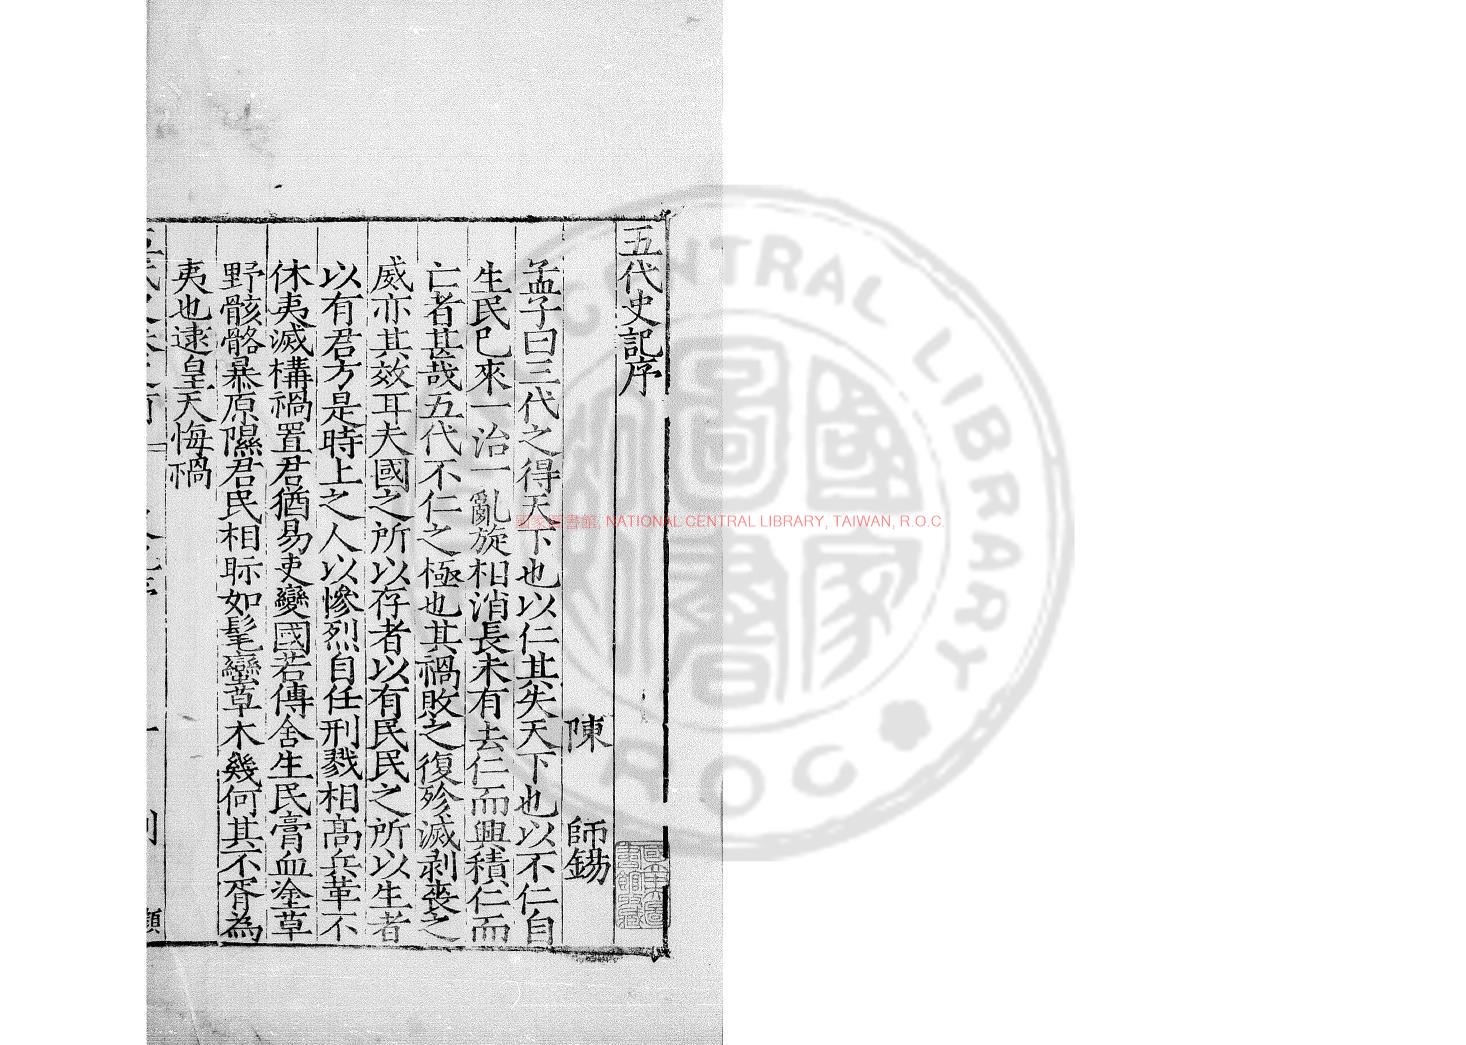 五代史記序
陳師錫
孟子曰三代之得天下也以仁其失天下也以不仁自
生民已來一治一亂旋相消長未有去仁而興積仁而
亡者甚哉五代不仁之極也其禍敗之復殄滅剥喪之
威亦其效耳夫國之所以存者以有民民之所以生者
以有君方是時上之人以慘烈自任刑戮相高兵革不
休夷滅構禍置君猶易吏變國若傳舍生民膏血塗草
野骸骼暴原隰君民相眎如髦蠻草木幾何其不胥為
夷也逮皇天悔禍
國家圖書館, NATIONAL CENTRAL LIBRARY, TAIWAN, R.O.C.
NATIONAL CENTRAL LIBRARY
ROC